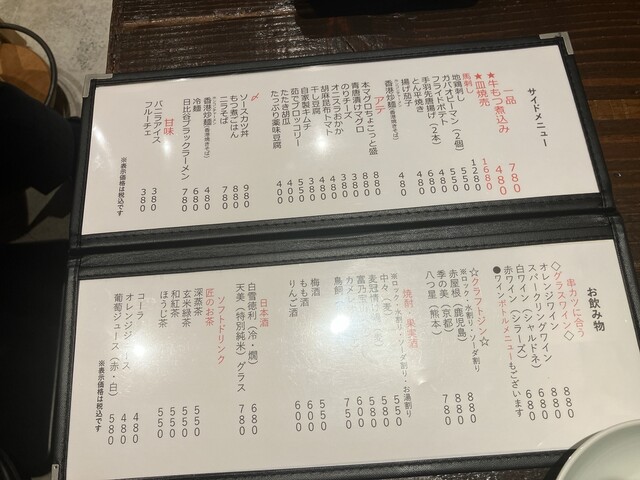 サイドメニュー
一品
★牛もつ煮込み 780
★皿焼売 480
馬刺し 1680
地鶏刺し 1280
ガパオピーマン(2個) 550
フライドポテト 550
手羽先唐揚げ(2本) 480
とん平焼き 680
揚げ茄子 480
香港炒麺 480
アテ
本マグロちょこっと盛 880
青唐漬けマグロ 880
のりチーズ 380
オニスラおかか 380
胡麻昆布トマト 480
干し豆腐 480
自家製キムチ 380
茹でブロッコリー 525
たたき胡瓜 400
たっぷり薬味豆腐 450
〆
ソースカツ丼 980
もつ煮ごはん 880
ニラそば 780
香港炒麺(香港焼きそば) 480
冷麺 680
日比谷ブラックラーメン 780
甘味
バニラアイス 380
フルーチェ 380
※表示価格は税込です
お飲み物
串カツに合う
◇グラスワイン◇
オレンジワイン 880
スパークリングワイン 880
白ワイン(シャルドネ) 680
赤ワイン(シラーズ) 680
●ワインボトルメニューもございます
☆クラフトジン☆
※ロック・水割り・ソーダ割り
赤屋根(鹿児島) 880
季の美(京都) 880
八つ星(熊本) 780
焼酎・果実酒
※ロック・水割り・ソーダ割り・お湯割り
中々(麦)
富乃宝
カメ 750
鳥飼
梅酒 550
もも酒 600
りんご酒 600
日本酒
白雪徳利(冷・燗) 680
天美(特別純米)グラス 780
ソフトドリンク
匠のお茶
深蒸茶 550
玄米緑茶 550
和紅茶 550
ほうじ茶 550
コーラ 480
オレンジジュース 480
葡萄ジュース(赤・白) 580
※表示価格は税込です